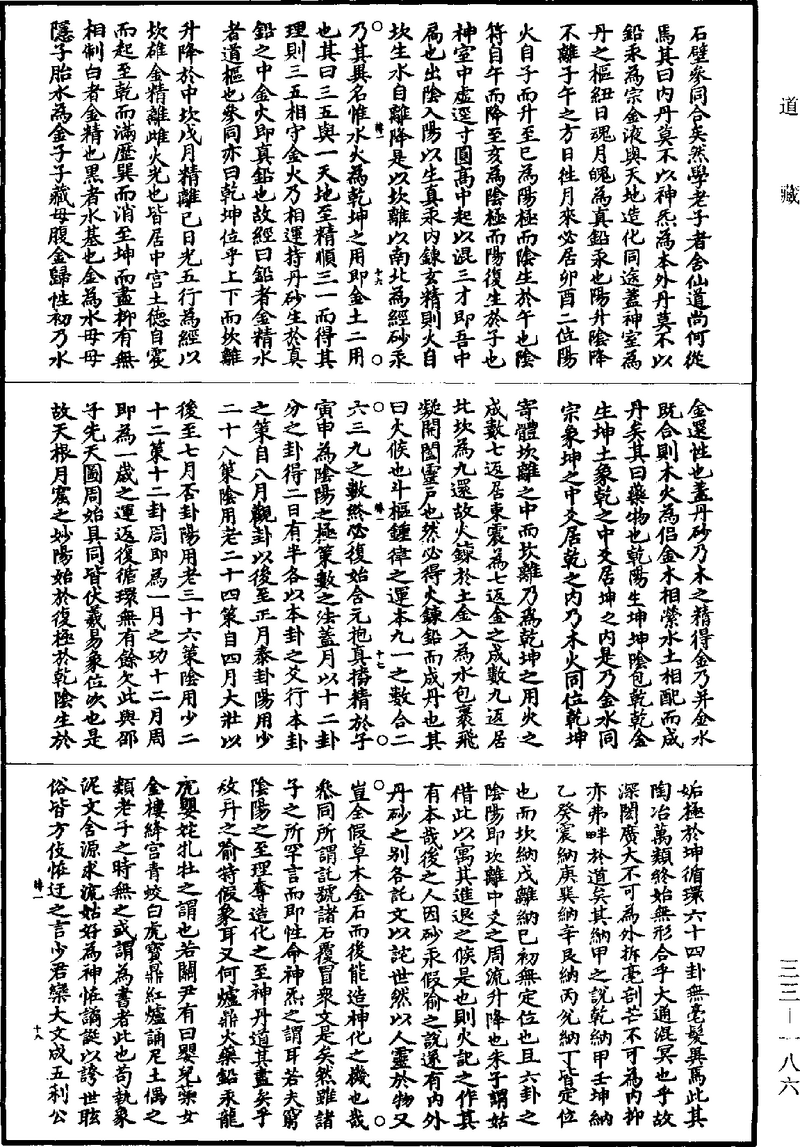 道藏
石壁參同合矣然學老子者舍仙道尚何從
焉其曰內丹莫不以神炁為本外丹莫不以
鉛汞為宗金液與天地造化同途蓋神室為
丹之樞紐日魂月魄為真鉛汞也陽升陰降
不離子午之方日徃月來必居卯酉二位陽
火自子而升至巳為陽極而陰生於午也陰
符自午而降至亥為陰極而陽復生於子也
神室中虛逕寸圓高中起以混三才即吾中
扃也出陰入陽以生真汞內鍊玄精則火自
坎生水自離降是以坎離以南北為經砂汞
乃其異名惟水火為乾坤之用即金土二用
也其曰三五與一天地至精順三一而得其
理則三五相守金火乃相運持丹砂生於真
鉛之中金火即真鉛也故經曰鉛者金精水
者道樞也參同亦曰乾坤位乎上下而坎離
升降於中坎戊月精離己日光五行為經以
坎雄金精離雌火光也皆居中宮土德自震
而起至乾而滿歷巽而消至坤而盡抑有無
相制白者金精也黑者水基也金為水母母
隱子胎水為金子子藏母腹金歸性初乃水
金還性也蓋丹砂乃木之精得金乃并金水
既合則木火為侶金木相縈水土相配而成
丹矣其曰藥物也乾陽生坤坤陰包乾乾金
生坤土象乾之中爻居坤之內是乃金水同
宗象坤之中爻居乾之內乃木火同位乾坤
寄體坎離之中而坎離乃為乾坤之用火之
成數七返居東震為七返金之成數九返居
北坎為九還故火鍊於土金入為水包裹飛
凝開闔靈戶也然必得火鍊鉛而成丹也其
曰火候也斗樞鍾律之運本九一之數合二
六三九之數終必復始含元抱真播精於子
寅申為陰陽之極策數之法蓋月以十二卦
分之卦得二日有半各以本卦之爻行本卦
之策自八月觀卦以後至正月泰卦陽用少
二十八策陰用老二十四策自四月大壯以
後至七月否卦陽用老三十六策陰用少二
十二策十二卦周即為一月之功十二月周
即為一歲之運返復循環無有餘欠此與邵
子先天圖周始具同皆伏羲易象位次也是
故天根月窟之妙陽始於復極於乾陰生於
姤極於坤循環六十四卦無毫髮異焉此其
陶冶萬類終始無形合乎大通混冥也乎故
深閎廣大不可為外拆毫剖芒不可為內抑
亦弗畔於道矣其納甲之說乾納甲壬坤納
乙癸震納庚巽納辛艮納丙兌納丁皆定位
也而坎納戊離納己初無定位也且六卦之
陰陽即坎離中爻之周流升降也朱子謂姑
借此以寓其進退之候是也則火記之作其
有本哉後之人因砂汞假喻之說遂有內外
丹砂之別各託文以詫世然以人靈於物又
豈全假草木金石而後能造神化之機也哉
叅同所謂託號諸石覆冒衆文是矣然雖諸
子之所罕言而即性命神炁之謂耳若夫窮
陰陽之至理奪造化之至神丹道其盡矣乎
攷丹之喻特假象耳又何爐鼎火藥鉛汞龍
虎嬰姹牝牡之謂也若關尹有曰嬰兒蘂女
金樓絳宮青蛟白虎寶鼎紅爐誦呪土偶之
類老子之時無之或謂為書者此也苟執象
泥文舍源求流姑好為神恠譎誕以誇世眩
俗皆方伎恠迂之言少君欒大文成五利公
十六
十七
十八
三三－一八六